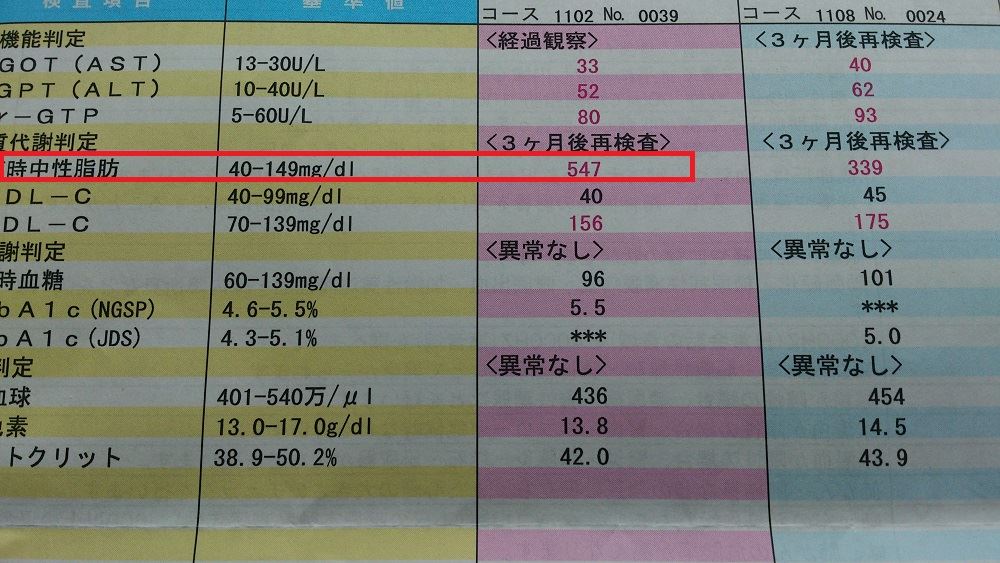 検査項目 基準値 コース 1102 No. 0039 コース 1108 No. 0024
機能判定 <経過観察> <3ヶ月後再検査>
GOT(AST) 13-30U/L 33 40
GPT(ALT) 10-40U/L 52 62
r-GTP 5-60U/L 80 93
質代謝判定 <3ヶ月後再検査> <3ヶ月後再検査>
時中性脂肪 40-149mg/dl 547 339
DL-C 40-99mg/dl 40 45
DL-C 70-139mg/dl 156 175
謝判定 <異常なし> <異常なし>
時血糖 60-139mg/dl 96 101
bA1c(NGSP) 4.6-5.5% 5.5 ***
bA1c(JDS) 4.3-5.1% *** 5.0
判定 <異常なし> <異常なし>
血球 401-540万/μl 436 454
色素 13.0-17.0g/dl 13.8 14.5
トクリット 38.9-50.2% 42.0 43.9